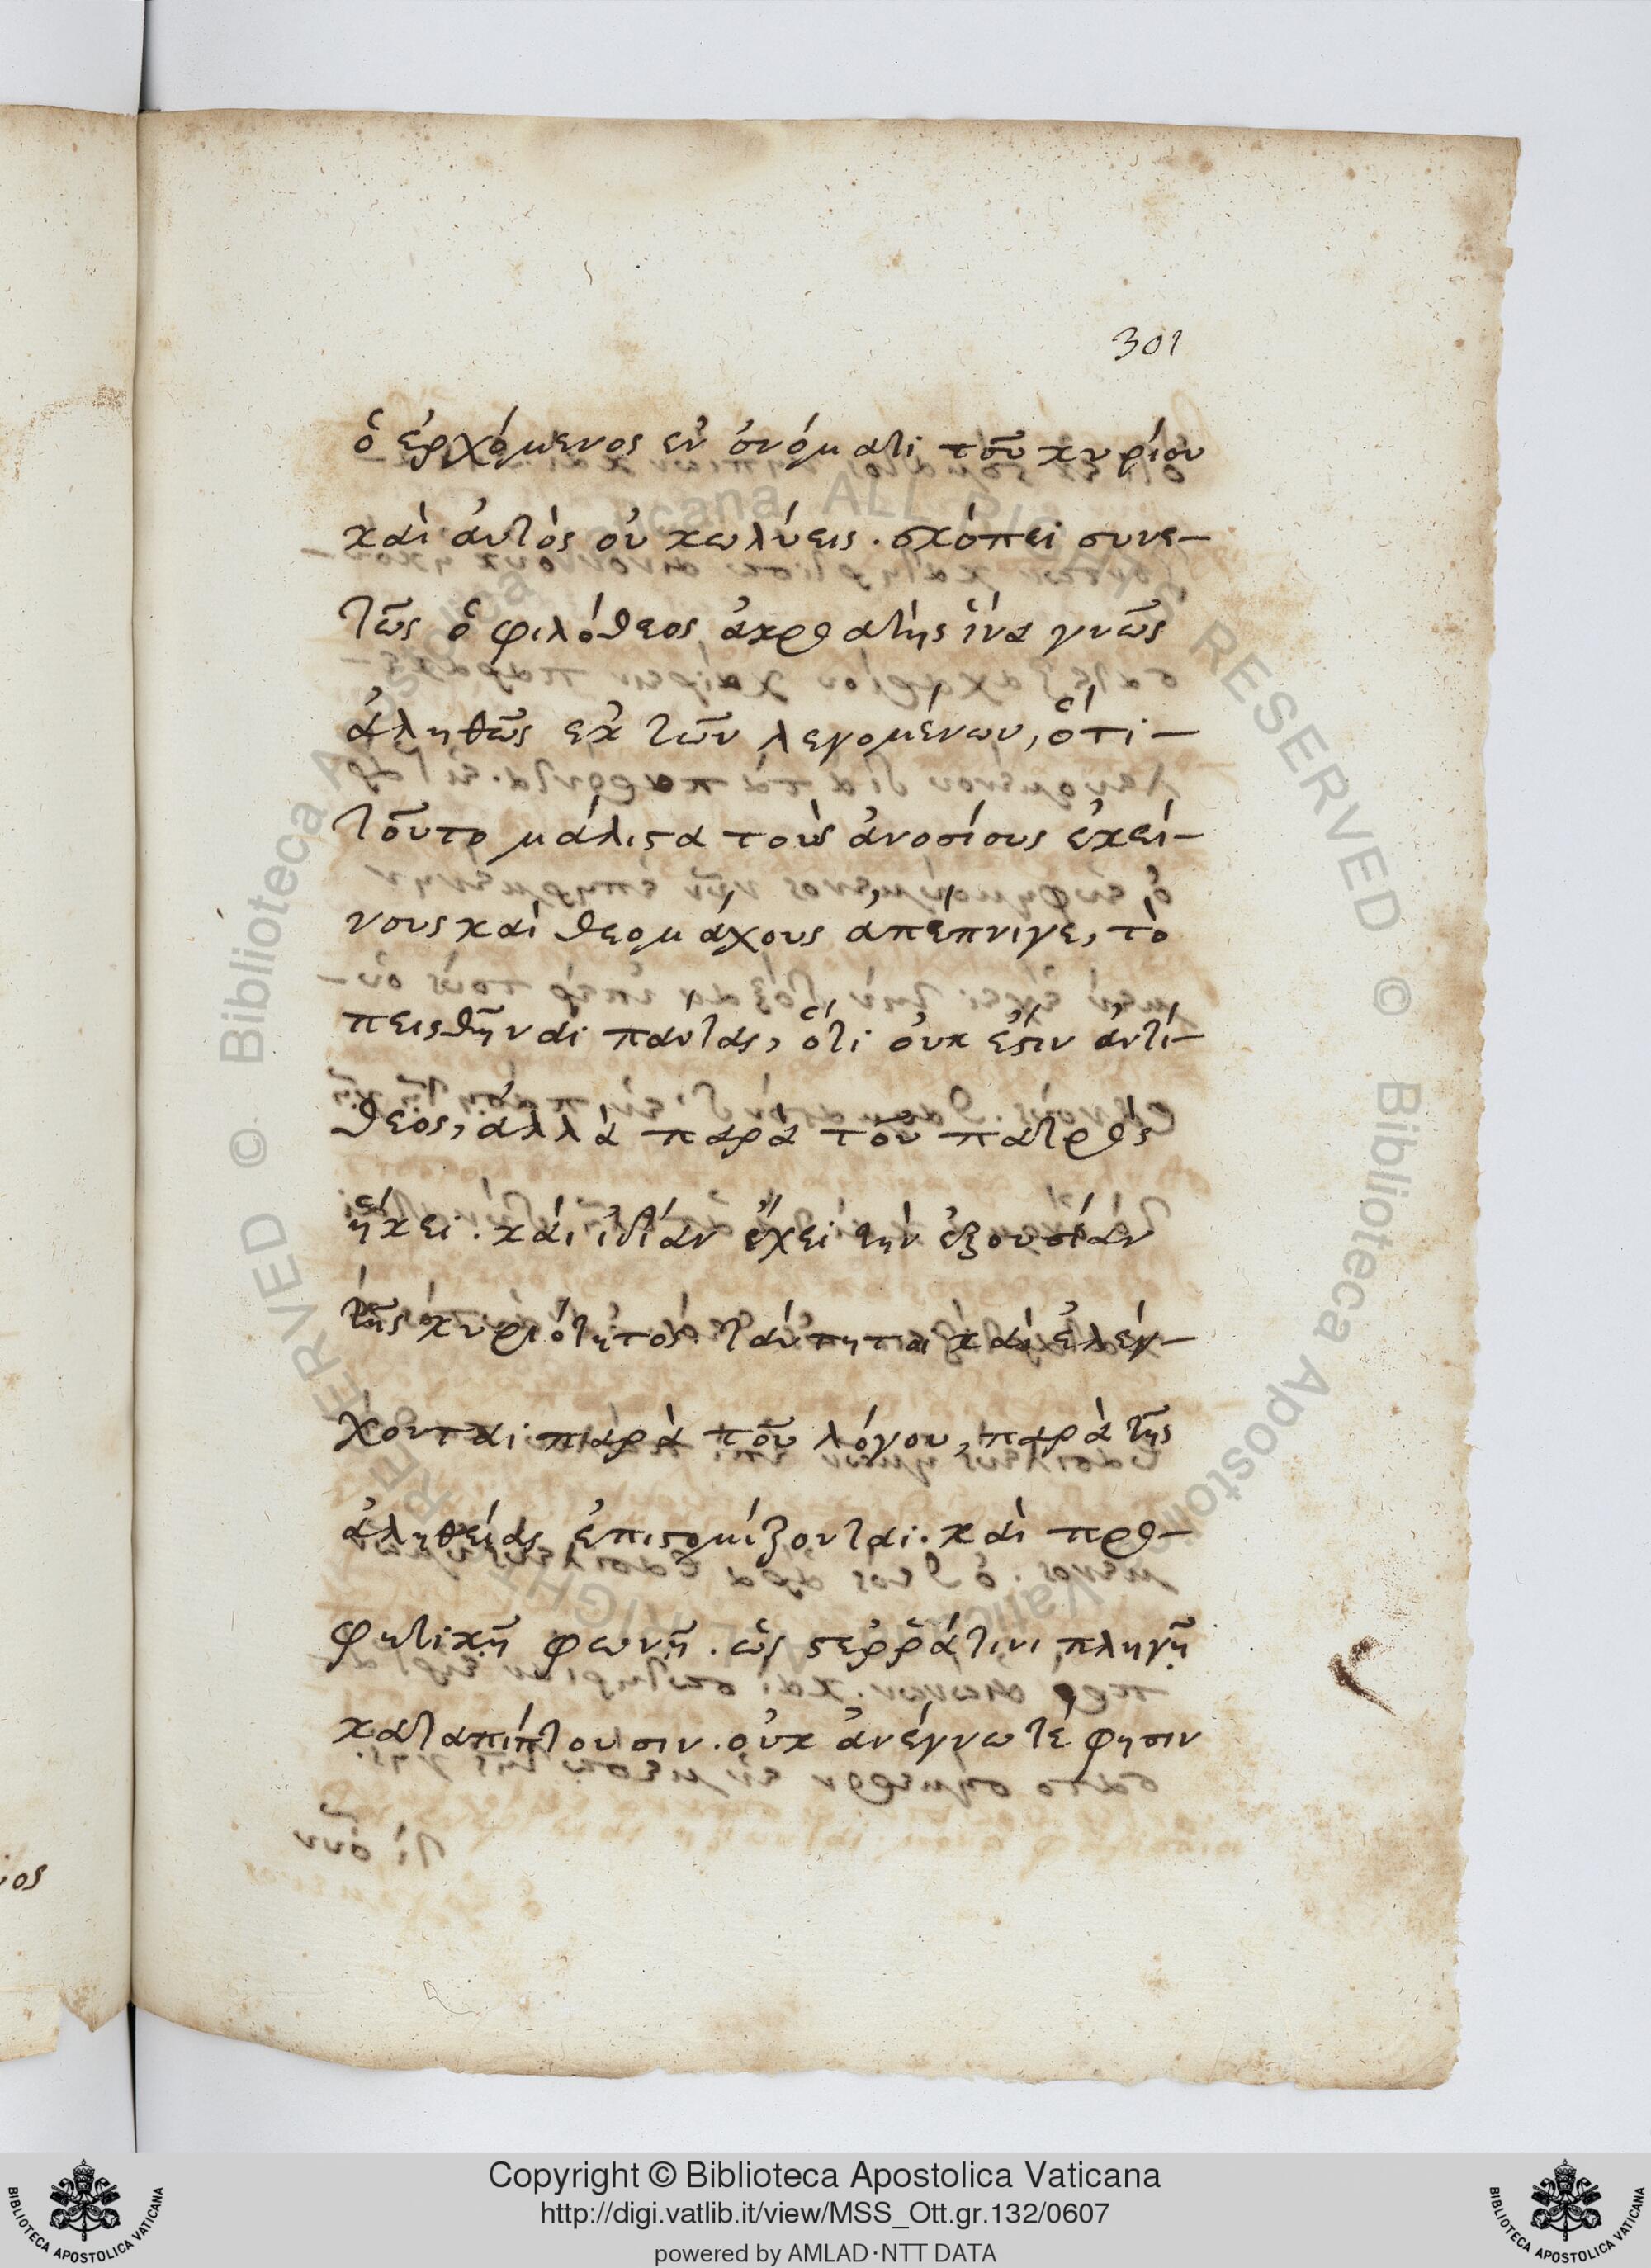 301
ὁ ἐρχόμενος ἐν ὀνόματι τοῦ κυρίου
καὶ ἀυτὸς οὐ κωλύεις. σκόπει συνε-
τῶς ὁ φιλόθεος ἀκροατὴς ἵνα γνῶς
ἀληθῶς ἐκ τῶν λεγομένων, ὅτι-
τοῦτο μάλιϛα τοὺς ἀνοσίους ἐκεί-
νους καὶ θεομάχους ἀπέπνιγε, τὸ
πεισθῆναι πάντας, ὅτι οὐκ ἔϛιν ἀντί-
θεος, ἀλλὰ παρὰ τοῦ πατρὸς
ἥκει. καὶ ἰδίαν ἔχει τὴν ἐξουσίαν
τῆς κυριότητος. καὶ ἐλέγ-
χονται παρὰ τοῦ λόγου, παρὰ τῆς
ἀληθείας ἐπιϛομίζονται. καὶ προ-
φητικῇ φωνῇ. ὡς ϛερρᾷ τινι πληγῇ
καταπίπτουσιν. οὐκ ἀνέγνωτέ φησιν
ιος
Copyright © Biblioteca Apostolica Vaticana
http://digi.vatlib.it/view/MSS_Ott.gr.132/0607
powered by AMLAD·NTT DATA
BIBLIOTECA APOSTOLICA VATICANA
BIBLIOTECA APOSTOLICA VATICANA